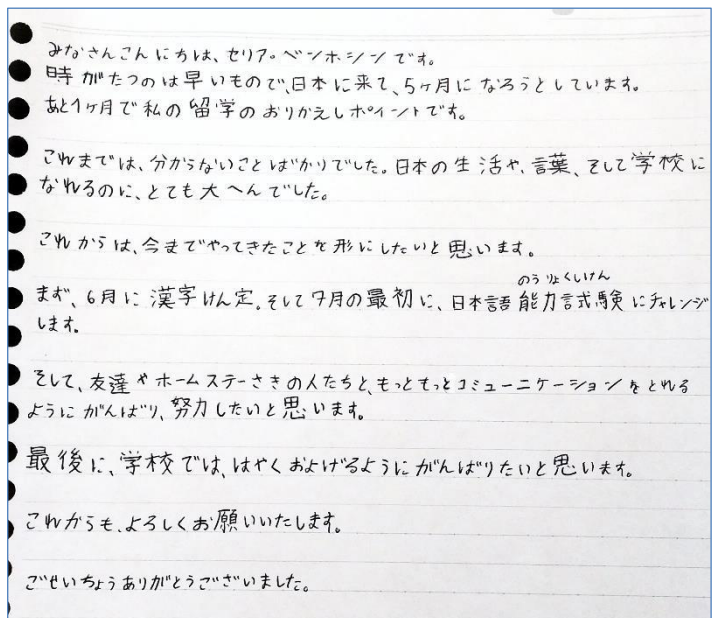 みなさんこんにちは、セリア・ベンホシンです。
時がたつのは早いもので、日本に来て、5ヶ月になろうとしています。
あと1ヶ月で私の留学のおりかえしポイントです。
これまでは、分からないことばかりでした。日本の生活や、言葉、そして学校に
なれるのに、とても大へんでした。
これからは、今までやってきたことを形にしたいと思います。
まず、6月に漢字けん定。そして7月の最初に、日本語能力試験にチャレンジ
のうりょくしけん
します。
そして、友達やホームステーさきの人たちと、もっともっとコミューニケーションをとれる
ようにがんばり、努力したいと思います。
最後に、学校では、はやくおよげるようにがんばりたいと思います。
これからも、よろしくお願いいたします。
ごせいちょうありがとうございました。